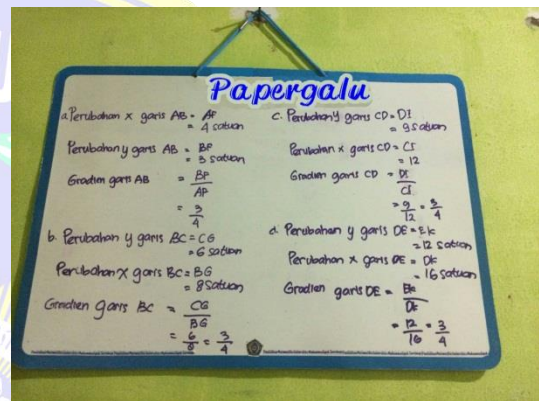 Papergalu
a. Perubahan x garis AB = AP
= 4 satuan
Perubahan y garis AB = BP
= 3 satuan
Gradien garis AB = BP/AP
= 3/4
b. Perubahan y garis BC = CG
= 6 satuan
Perubahan x garis BC = BG
= 8 satuan
Gradien garis BC = CG/BG
= 6/8 = 3/4
c. Perubahan y garis CD = DI
= 9 satuan
Perubahan x garis CD = CI
= 12
Gradien garis CD = DI/CI
= 9/12 = 3/4
d. Perubahan y garis DE = Ek
= 12 satuan
Perubahan x garis DE = Dk
= 16 satuan
Gradien garis DE = Ek/Dk
= 12/16 = 3/4